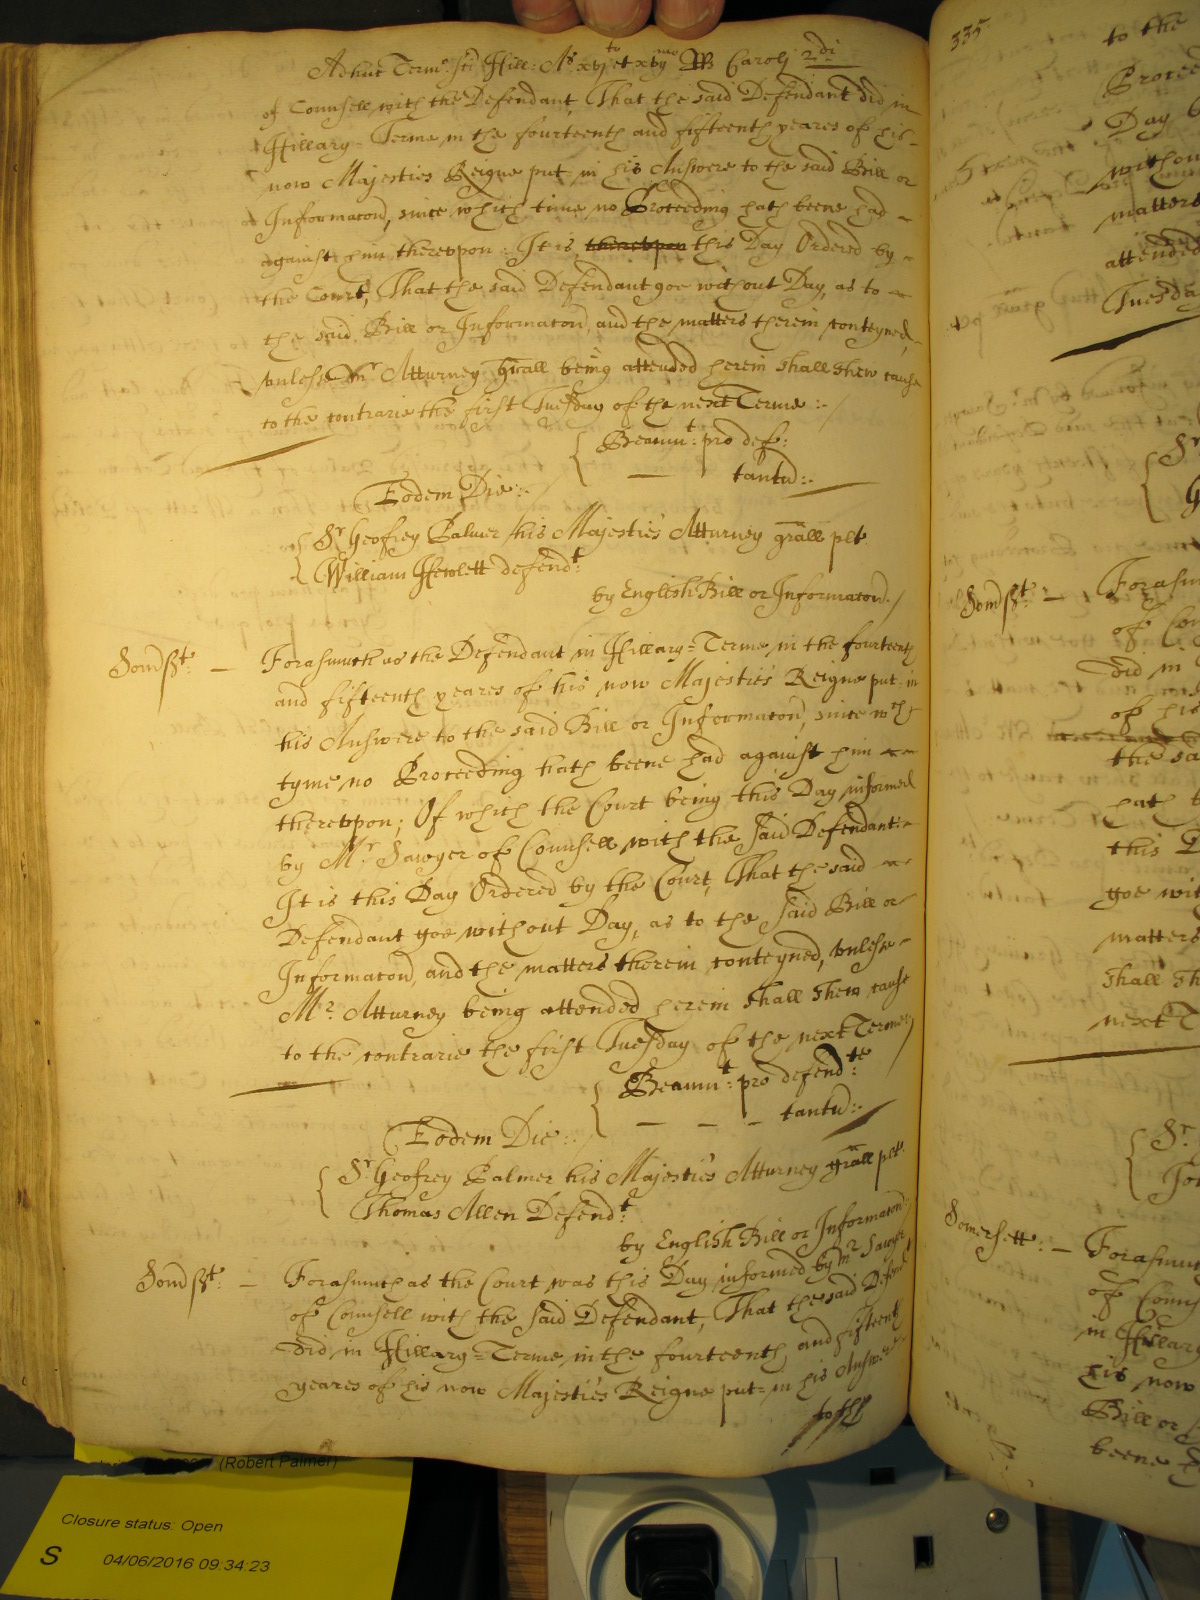 Adhuc Term.o s̄ci Hill: A.o xvj.to et xvij.mo RR Caroli 2.di
of Counsell with the Defendant, That the said Defendant did in
Hillary=Terme in the fourteenth and fifteenth yeares of his
now Majesties Reigne put in his Answere to the said Bill or
Informacon, since which time no Proceeding hath beene had
against him therevpon: It is therevpon this Day Ordered by
the Court, That the said Defendant goe without Day, as to
the said Bill or Informacon and the matters therein conteyned,
vnlesse Mr Atturney grall being attended herein shall shew cause
to the contrarie the first Tuesday of the next Terme:
Beaum.t: pro def:
tantu:
Eodem Die:
Sr Geofrey Palmer his Majesties Atturney grall plt
William Hewlett defend.t:
by English Bill or Informacon.
Somsßt: — Forasmuch as the Defendant in Hillary=Terme in the fourteenth
and fifteenth yeares of his now Majesties Reigne put in
his Answere to the said Bill or Informacon, since wch
tyme no Proceeding hath beene had against him
therevpon; Of which the Court being this Day informed
by Mr Sawyer of Counsell with the said Defendant:
It is this Day Ordered by the Court, That the said
Defendant goe without Day, as to the said Bill or
Informacon, and the matters therein conteyned, vnlesse
Mr. Atturney being attended herein shall shew cause
to the contrarie the first Tuesday of the next Terme
Beaum.t: pro defend.te
tantu:
Eodem Die:
Sr Geofrey Palmer his Majesties Atturney grall plt.
Thomas Allen Defend.t:
by English Bill or Informacon
Somsßt: — Forasmuch as the Court was this Day informed by Mr Sawyer
of Counsell with the said Defendant, That the said Defend
did in Hillary=Terme in the fourteenth and fifteenth
yeares of his now Majesties Reigne put in his Answere
to the
335
to the
Procee
Day b
withou
matters
attended
Tuesda
Sr
G
Somsßt: — Forasm
of Cou
did in
of his
the sa
hath b
this D
goe wit
matters
shall sh
next T
Sr.
Jo
Somersett: — Forasmuc
of Couns
in Hillary
his now
Bill or
beene
(Robert Palmer)
Closure status: Open
S 04/06/2016 09:34:23